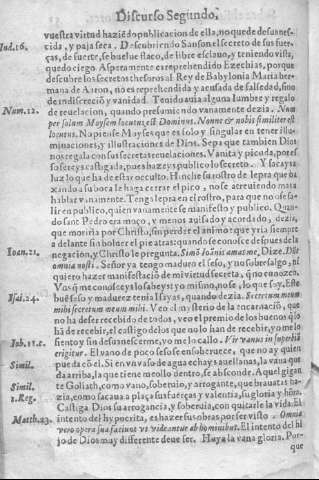 Discurso Segundo,
vuestra virtud haziẽdo publicacion de ella, no quede desuanes-
Iud.16. cida, y paja sera. Descubriendo Sanson el secreto de sus fuer-
ças, de fuerte, se buelue flaco, de libre esclauo, y teniendo vista,
quedo ciego. Asperamente es reprehendido Ezechias, porque
descubre los secretos thesoros al Rey de Babylonia. Maria her-
mana de Aaron, no es reprehendida y acusada de falsedad, sino
de indiscreció y vanidad. Tenido auia alguna lumbre y regalo
Num.12. de reuelacion, quando presumiendo vanamente dezia. Num
per solum Moysem locutus est Dominus. Nonne & nobis similiter est
locutus. No piense Moyses que es solo y singular en tener illu-
minaciones, y illustraciones de Dios. Sepa que tambien Dios
nos regala con sus secretas reuelaciones. Vanita y picuda, pores-
so sereys castigada, pues hazeys publico lo secreto. Y so caysa
luz lo que ha de estar occulto. Hinche su rostro de lepra que os
xando a su boca le haga cerrar el pico, no se atreuiendo mas a
hablar vanamente. Tenga lepra en el rostro, para que no ose sa-
lir en publico, quien vanamente se manifesto y publico. Quan-
do sant Pedro era moço, y menos auisado y acordado, dezia,
que moriria por Christo, sin perder el animo: que yria siempre
a delante sin boluer el pie atras: quando se conosce despues de la
Ioan.21. negacion, y Christo le pregunta. Simõ Ioãnis amas me, Dize. Dñe
omnia nosti. Señor ya tengo maduro el seso, y no suber salgo, ni
quiero hazer manifestacio de mi virtud secreta, que no conozco.
Vos q̃ me conosceys lo sabeys: yo mismo, no se, lo que soy. Este
Isai.24. buẽ seso y madurez tenia Isayas, quando dezia. Secretum meum
mihi secretum meum mihi. Veo el mysterio de la encarnació, que
no ha de ser recebido de todos, veo el premio de los buenos q̃ lo
hã de recebir, el castigo delos que no lo han de recebir, yo me lo
Iob.11.c. siento y sin desuanescerme, yo me lo callo. Vir vanus in superbiã
erigitur. El vano de poco seso se ensoberuece, que no ay quien
Simil. pueda co él. Si en vn vaso de agua echays auellanas, la vana que
da arriba, la que tiene meollo dentro, se absconde. Aquel gigan
Simil. te Goliath, como vano, soberuio, y arrogante, que brauatas ha-
1.Reg. zia, como sacaua a plaça sus fuerças y valentia, su gloria y hõra.
Castiga Dios su arrogancia, y soberuia, con quitarle la vida. El
Matth.23. intento del hypocrita, es hazer sus obras por ser visto. Omnia
vero opera sua faciunt vt videantur ab hominibus. El intento del hi
jo de Dios muy differente deue ser. Huya la vana gloria. Por-
que